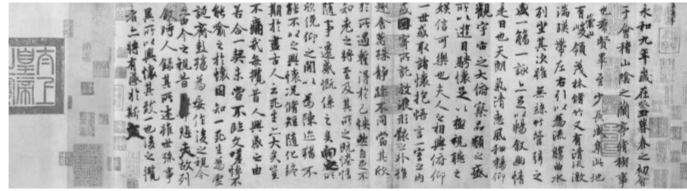 永和九年歲在癸丑暮春之初會
于會稽山陰之蘭亭脩禊事
也羣賢畢至少長咸集此地
有崇山峻領茂林脩竹又有清流激
湍暎帶左右引以為流觴曲水
列坐其次雖無絲竹管弦之
盛一觴一詠亦足以暢敘幽情
是日也天朗氣清惠風和暢仰
觀宇宙之大俯察品類之盛
所以遊目騁懷足以極視聽之
娛信可樂也夫人之相與俯仰
一世或取諸懷抱悟言一室之內
或因寄所託放浪形骸之外雖
趣舍萬殊靜躁不同當其欣
於所遇蹔得於己怏然自足不
知老之將至及其所之既惓情
隨事遷感慨係之矣向之所
欣俛仰之閒以為陳迹猶不
能不以之興懷況脩短隨化終
期於盡古人云死生亦大矣豈
不痛哉每攬昔人興感之由
若合一契未嘗不臨文嗟悼不
能喻之於懷固知一死生為虛
誕齊彭殤為妄作後之視今
亦由今之視昔悲夫故列
敘時人錄其所述雖世殊事
異所以興懷其致一也後之攬
者亦將有感於斯文
太上皇帝